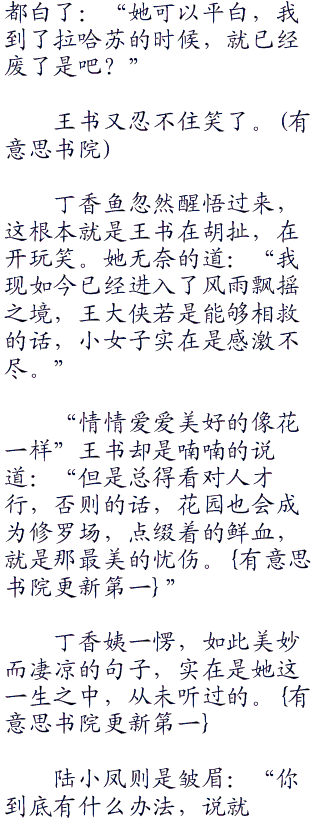 都白了：“她可以平白，我
到了拉哈苏的时候，就已经
废了是吧？”
王书又忍不住笑了。（有
意思书院）
丁香鱼忽然醒悟过来，
这根本就是王书在胡扯，在
开玩笑。她无奈的道：“我
现如今已经进入了风雨飘摇
之境，王大侠若是能够相救
的话，小女子实在是感激不
尽。”
“情情爱爱美好的像花
一样”王书却是喃喃的说
道：“但是总得看对人才
行，否则的话，花园也会成
为修罗场，点缀着的鲜血，
就是那最美的忧伤。{有意思
书院更新第一}”
丁香姨一愣，如此美妙
而凄凉的句子，实在是她这
一生之中，从未听过的。{有
意思书院更新第一}
陆小凤则是皱眉：“你
到底有什么办法，说就